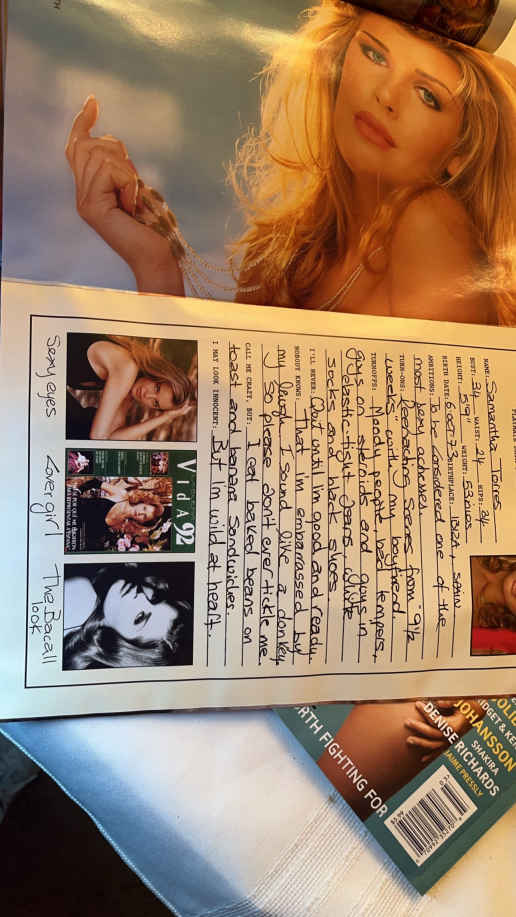 NAME: Samantha Torres
BUST: 34 WAIST: 24 HIPS: 34
HEIGHT: 5'9" WEIGHT: 53 kilos
BIRTH DATE: 6 oct 73 BIRTHPLACE: IBIZA, SPAIN
AMBITIONS: To be considered one of the
most sexy actresses
TURN-ONS: Reenacting scenes from "9½
weeks" with my boyfriend.
TURNOFFS: Moody people, bad tempers,
guys on steroids and guys in
elastic-tight jeans, white
socks and black shoes
I'LL NEVER: Quit until I'm good and ready.
NOBODY KNOWS: That I'm embarassed by
my laugh. I sound like a donkey
so please don't ever tickle me.
CALL ME CRAZY, BUT: I eat baked beans on
toast and banana sandwiches.
I MAY LOOK INNOCENT: But I'm wild at heart.
VIdA 92
Sexy eyes
Cover girl
The Bacall
look
JOHANSSON
SHAKIRA
DENISE RICHARDS
JAIME PRESSLY
RTH FIGHTING FOR
$5.99